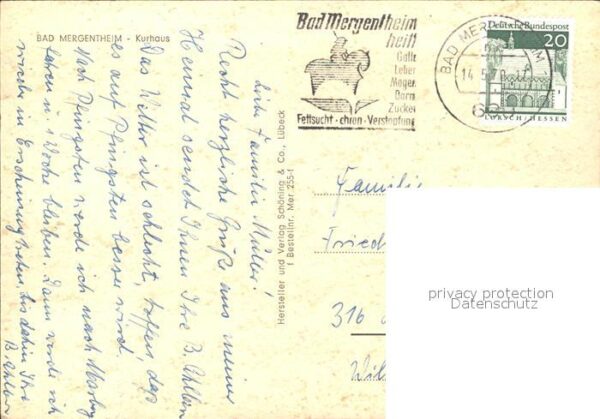 BAD MERGENTHEIM - Kurhaus
Liebe Familie Müller!
Recht herzliche Grüße aus meiner
Heimat sendet Ihnen Ihre B.
Das Wetter ist schlecht, hoffen das
es auf Pfingsten besser wird.
Nach Pfingsten werde ich nach
noch 1 Woche bleiben. Dann werde ich
wieder in Erscheinung treten, bis dahin Ihre
B.
Hersteller und Verlag Schöning & Co., Lübeck
f Bestellnr. Mer 255
Bad Mergentheim
heilt
Galle
Leber
Magen
Darm
Zucker
Fettsucht-chron-Verstopfung
BAD MERGENTHEIM
14.5.70
Deutsche Bundespost
20
LORSCH/HESSEN
Familie
Fried
316
privacy protection
Datenschutz